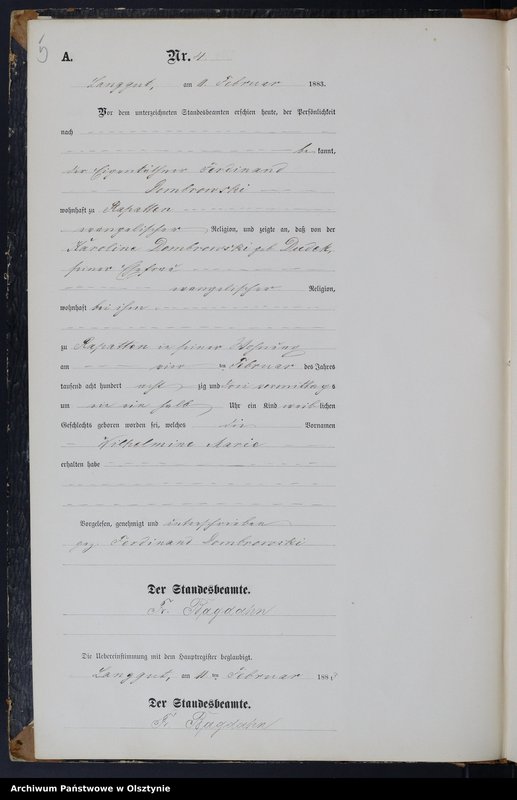 5
A. Nr. 4.
Langgut, am 9. Februar 1883.
Vor dem unterzeichneten Standesbeamten erschien heute, der Persönlichkeit
nach
be kannt,
der Eigenkäthner Ferdinand
Dombrowski
wohnhaft zu Rapatten
evangelischer Religion, und zeigte an, daß von der
Karoline Dombrowski geb. Dudek,
seiner Ehefrau
evangelischer Religion,
wohnhaft bei ihm
zu Rapatten in seiner Wohnung
am vier ten Februar des Jahres
tausend acht hundert acht zig und drei vormittag s
um ein halb Uhr ein Kind weib lichen
Geschlechts geboren worden sei, welches die Vornamen
Wilhelmine Marie
erhalten habe
Vorgelesen, genehmigt und unterschrieben
gez. Ferdinand Dombrowski
Der Standesbeamte.
Fr. Ragdahn
Die Uebereinstimmung mit dem Hauptregister beglaubigt.
Langgut, am ten Februar 188
Der Standesbeamte.
Fr. Ragdahn
Archiwum Państwowe w Olsztynie